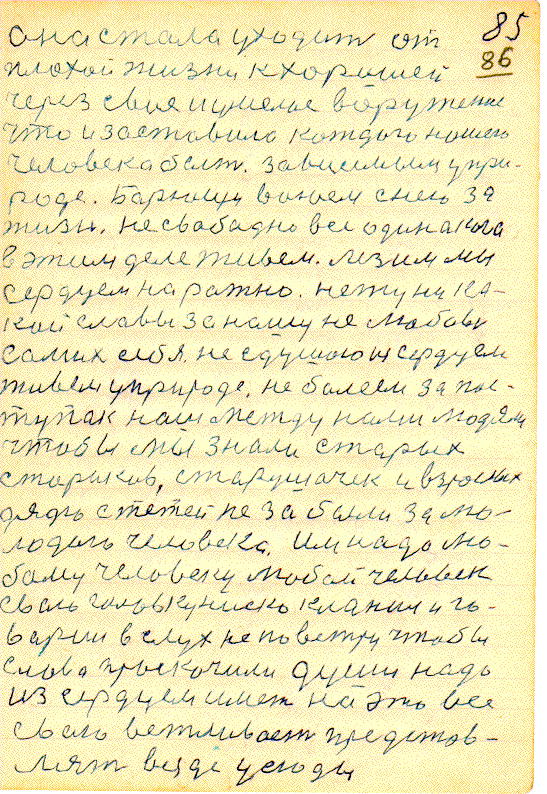 85
86
она стала уходит от
плохой жизни к хорошей
через свое и умелое воружение
что и заставило каждого нашего
человека быт. зависимым у при-
роде. Барющи воюем снею за
жизн. не свабадно все одинакова
в этим деле живем. лезим мы
сердцем на ражно. нету ни ка-
кой славы за нашу не любовь
самих себя. не с душою и сердцем
живем у природе. не болеем за пос-
тупак наш между нами людям
чтобы мы знали старых
стариков, старушачек и взрослых
дядь с тетей не забыли за мо-
лодого человека. Им надо лю-
бому человеку любой человек
сваю голову ниско кланит и го-
варит в слух не поветру чтобы
слова праскочили души надо
из сердцем имет на это все
сваю вежливаст представ-
лят везде усюды